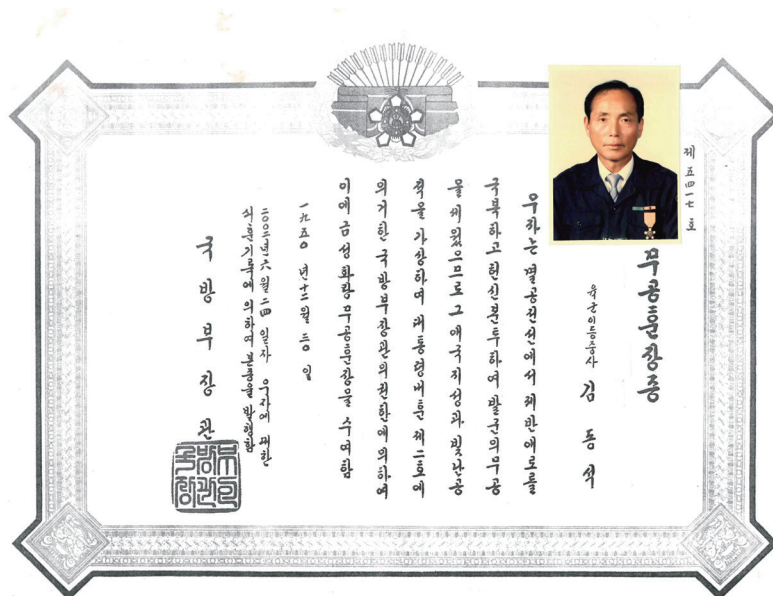 제 五四一七 호
무공훈장증
육군이등중사 김 동 석
우자는 멸공전선에서 제반애로를
극복하고 헌신분투하여 발군의무공
을 세웠으므로 그 애국지성과 빛난공
적을 가상하여 대통령내훈 제二호에
의거한 국방부장관의권한에 의하여
이에 금성화랑무공훈장을 수여함
一九五〇 년十二월 三〇 일
二〇〇二년六월二四 일자 우자에 대한
서훈기록에 의하여 본증을 발행함
국 방 부 장 관